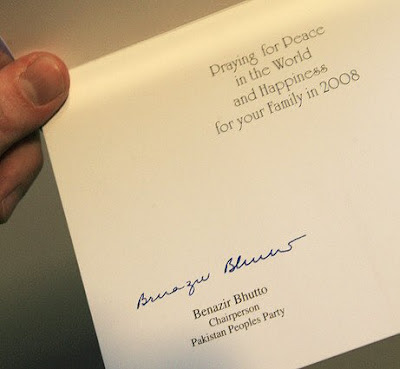 Praying for Peace
in the World
and Happiness
for your Family in 2008
Benazir Bhutto
Benazir Bhutto
Chairperson
Pakistan Peoples Party